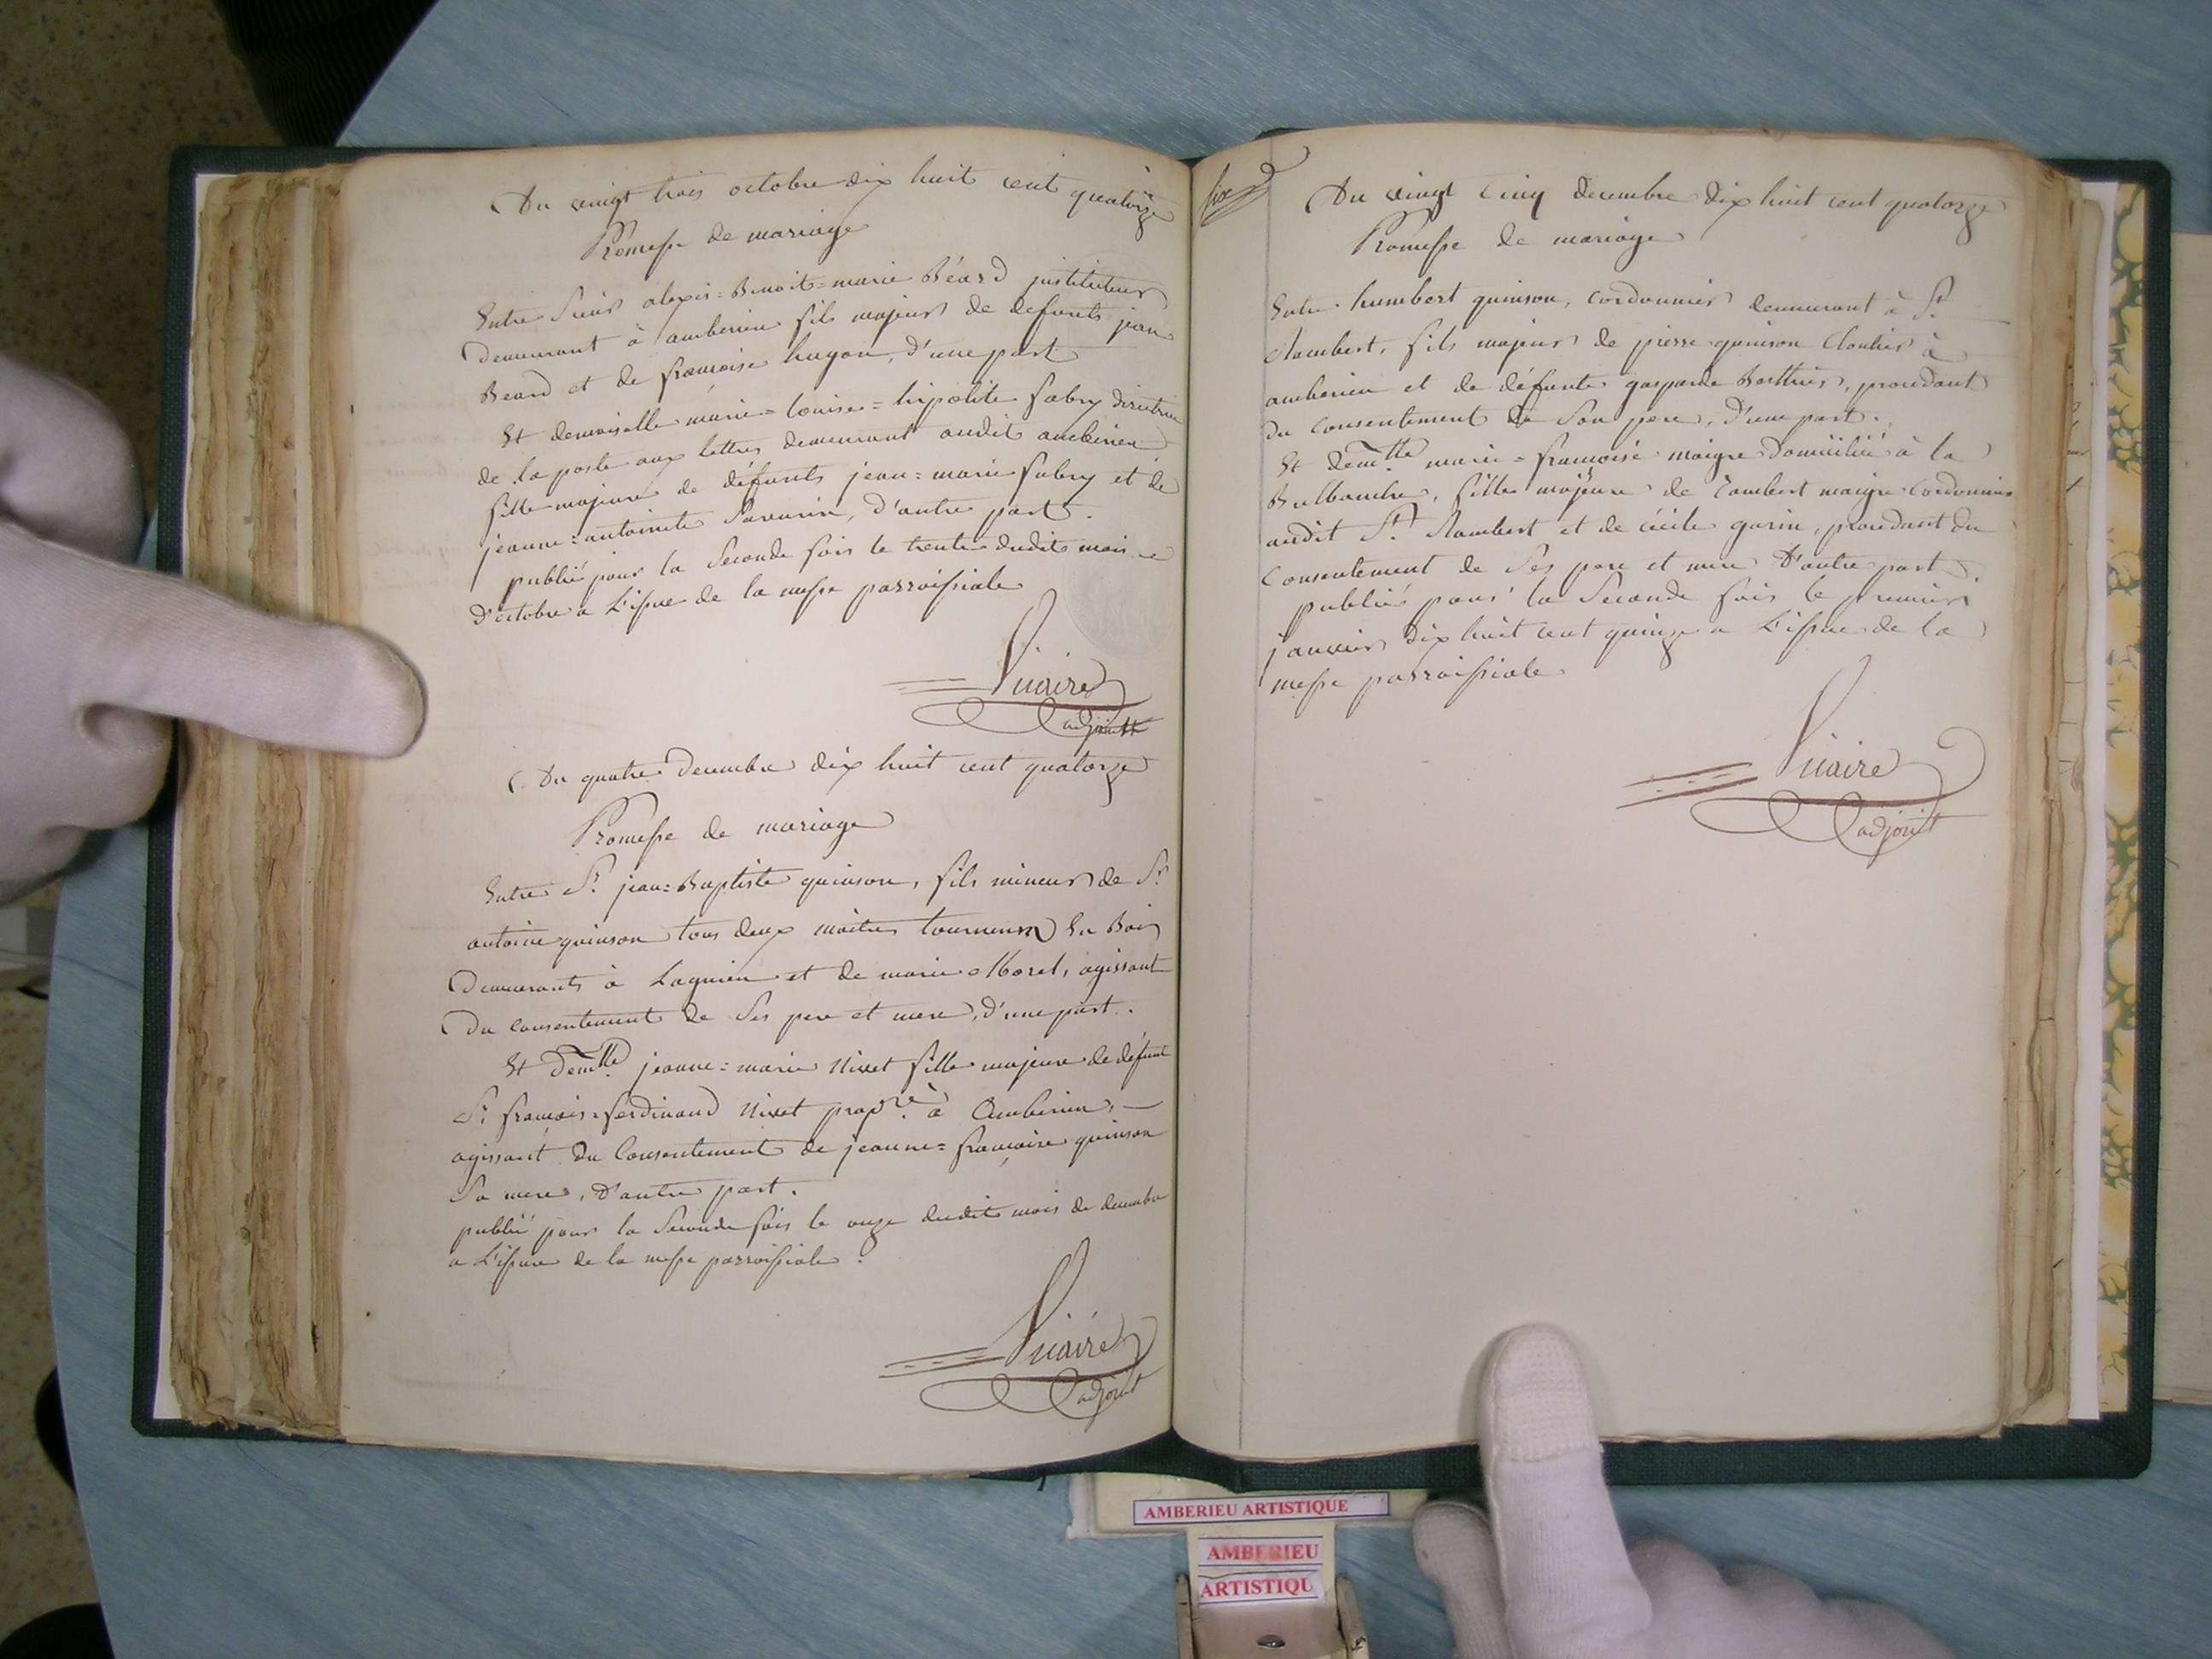 Du vingt trois octobre dix huit cent quatorze
Promesse de mariage
Entre Sieur alexis=Benoit=marie Béard instituteur
demeurant à amberieu fils majeur de defunts jean
Beard et de francoise hugon, d'une part
Et demoiselle marie=louise=hipolite fabry directrice
de la poste aux lettres demeurant audit amberieu
fille majeure de défunts jean=marie fabry et de
jeanne=antoinete Savarin, d'autre part.
publié pour la Seconde fois le trente dudit mois
d'octobre a L'issue de la messe parroissiale
Vicaire
adjoint
Du quatre decembre dix huit cent quatorze
Promesse de mariage
Entre Sr. jean=Baptiste quinson, fils mineur de Sr.
antoine quinson tous deux maitres tourneurs En Bois
Demeurants à Lagnieu et de marie Morel, agissant
Du consentement de Ses pere et mere, d'une part.
Et demlle. jeanne=marie Nivet fille majeure de défunt
Sr. francois=ferdinand Nivet propre. à Amberieu,
agissant du Consentement de jeanne=francoise quinson
Sa mere, d'autre part.
publié pour la Seconde fois le onze dudit mois de decembre
a L'issue de la messe parroissiale.
Vicaire
adjoint
six
Du vingt Cinq decembre dix huit cent quatorze
Promesse de mariage
Entre humbert quinson, cordonnier demeurant à St.
Rambert, fils majeur de pierre quinson Cloutier à
amberieu et de défunte gasparde Berthier, procedant
du consentement de Son pere, d'une part.
Et demlle. marie=francoise maigre domiciliée à la
fille majeure de Lambert maigre Cordonnier
audit St. Rambert et de cécile garin, procedant du
Consentement de Ses pere et mere d'autre part.
publié pour la Seconde fois le premier
janvier dix huit cent quinze a L'issue de la
messe parroissiale
Vicaire
adjoint
AMBERIEU ARTISTIQUE
AMBERIEU
ARTISTIQU